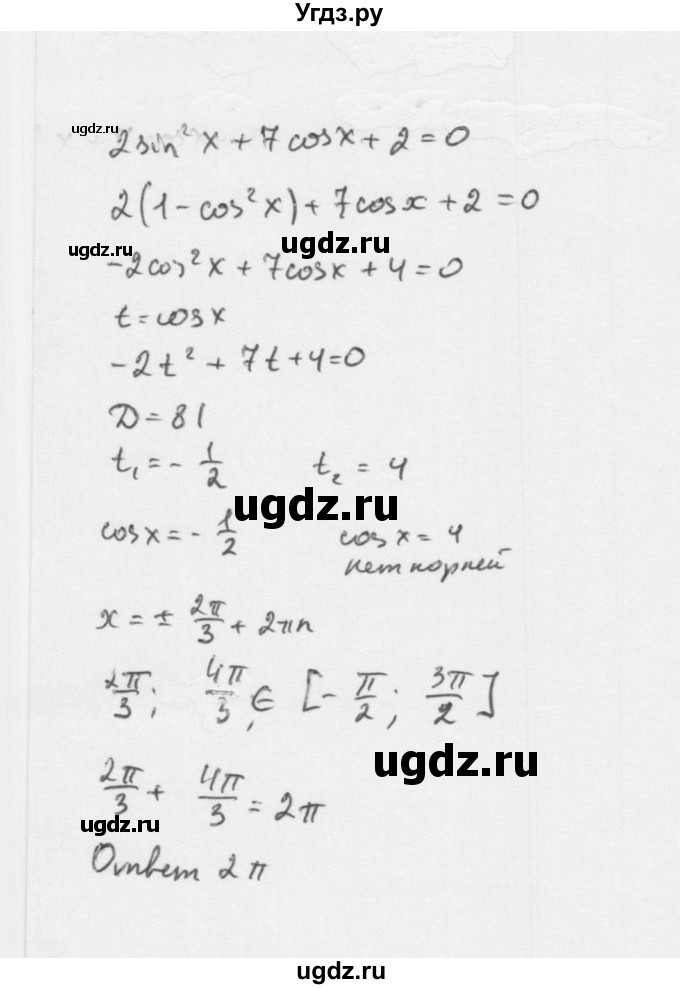 Угдз.ру
ugdz.ru
2sin²x + 7cosx + 2 = 0
2(1 - cos²x) + 7cosx + 2 = 0
ugdz.ru ugdz.ru
-2cos²x + 7cosx + 4 = 0
t = cosx
-2t² + 7t + 4 = 0
D = 81
t₁ = - 1/2 t₂ = 4
ugdz.ru
cosx = - 1/2 cosx = 4
нет корней
x = ± 2π/3 + 2πn
2π/3; 4π/3, ∈ [- π/2; 3π/2]
ugdz.ru
2π/3 + 4π/3 = 2π
ugdz.ru
Ответ 2π
ugdz.ru
ugdz.ru